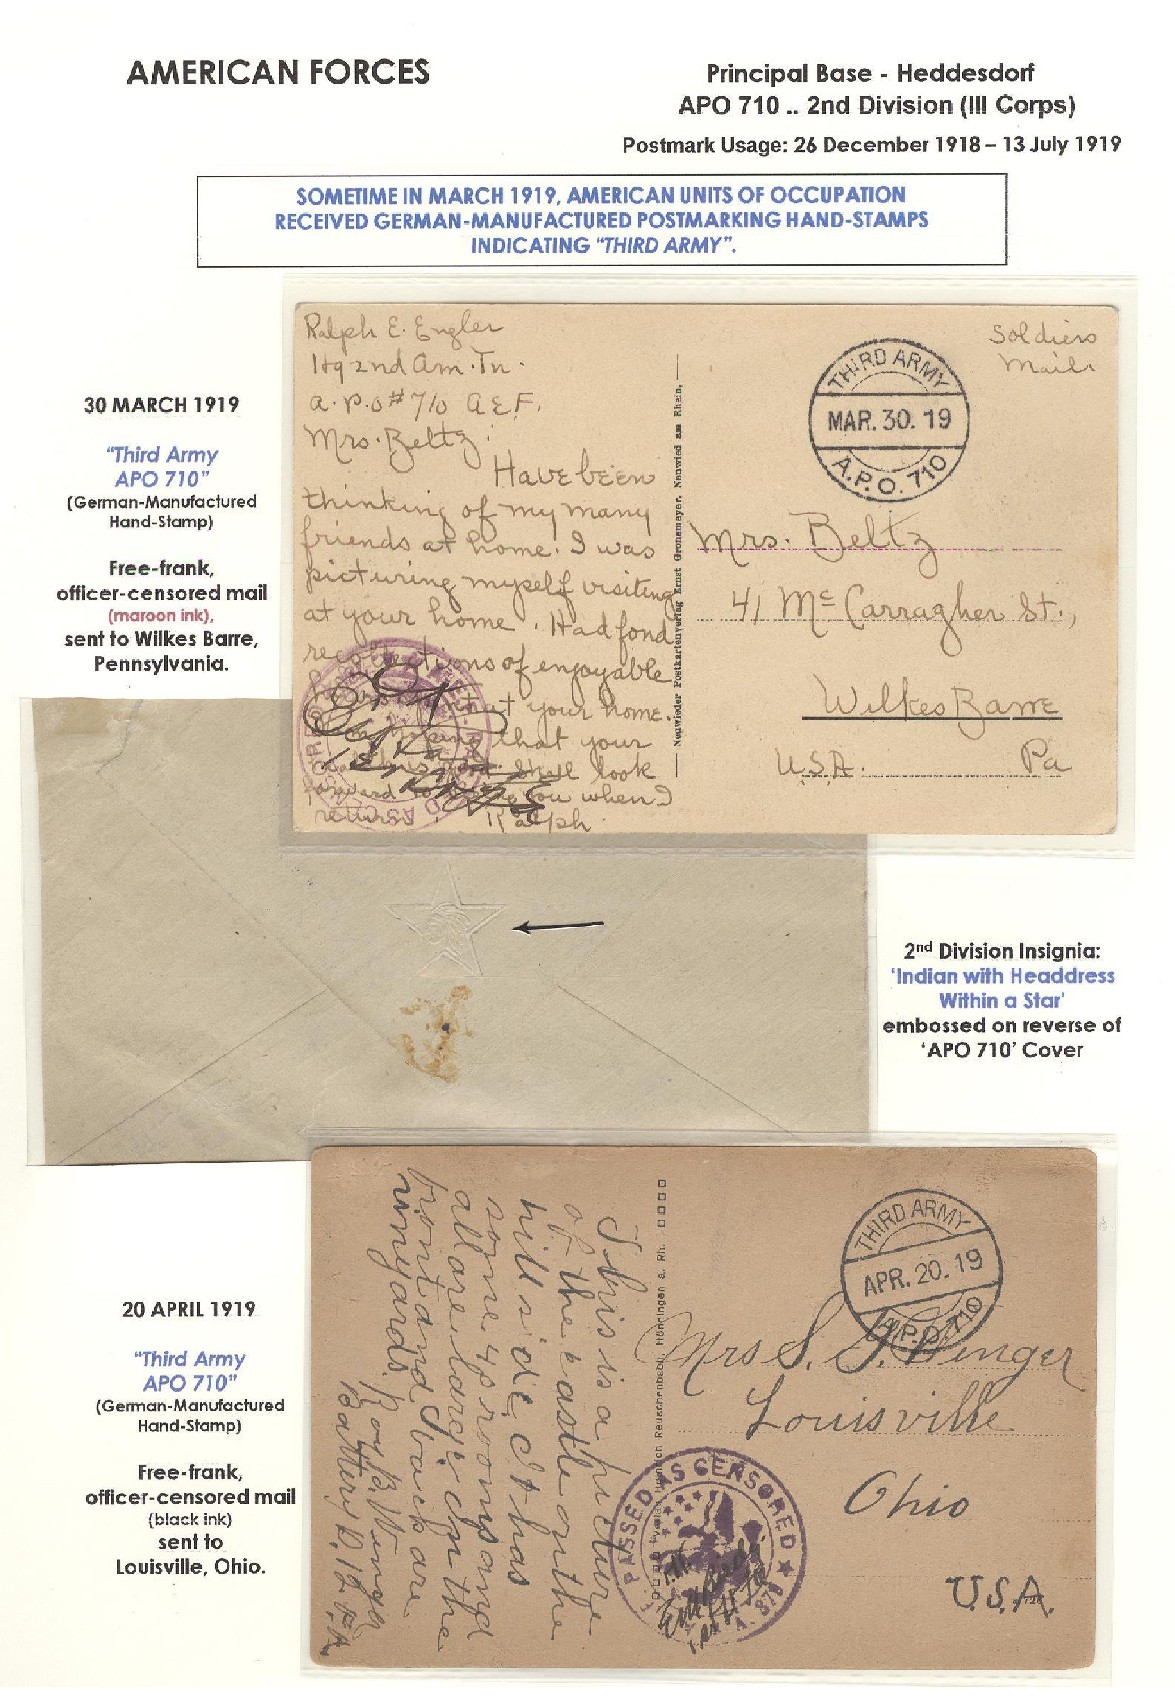 AMERICAN FORCES
Principal Base - Heddesdorf
APO 710 .. 2nd Division (III Corps)
Postmark Usage: 26 December 1918 – 13 July 1919
SOMETIME IN MARCH 1919, AMERICAN UNITS OF OCCUPATION
RECEIVED GERMAN-MANUFACTURED POSTMARKING HAND-STAMPS
INDICATING "THIRD ARMY".
30 MARCH 1919
"Third Army
APO 710"
(German-Manufactured
Hand-Stamp)
Free-frank,
officer-censored mail
(maroon ink),
sent to Wilkes Barre,
Pennsylvania.
Ralph E. Engler
Hq 2nd Am. Tn.
A.P.O # 710 A.E.F.
Mrs. Beltz:
Have been
thinking of my many
friends at home. I was
picturing myself visiting
at your home. Had fond
recollections of enjoyable
at your home.
that your
shall look
forward to you when I
return. Ralph.
Neuwieder Postkartenverlag Ernst Gronemeyer, Neuwied am Rhein,
Soldiers
Mail
THIRD ARMY
MAR. 30. 19
A.P.O. 710
Mrs. Beltz
41 McCarragher St.,
Wilkes Barre
U.S.A. Pa
2nd Division Insignia:
'Indian with Headdress
Within a Star'
embossed on reverse of
'APO 710' Cover
20 APRIL 1919
"Third Army
APO 710"
(German-Manufactured
Hand-Stamp)
Free-frank,
officer-censored mail
(black ink)
sent to
Louisville, Ohio.
This is a picture
of the castle on the
hill side. It has
some 45 rooms and
all are large. In the
front and back are
vinyards.
Battery D, 12 F.A.
Reuschenbach, Hönningen a. Rh.
THIRD ARMY
APR. 20. 19
A.P.O. 710
Mrs S. J. Winger
Louisville
Ohio
U.S.A.
PASSED AS CENSORED
A. 879